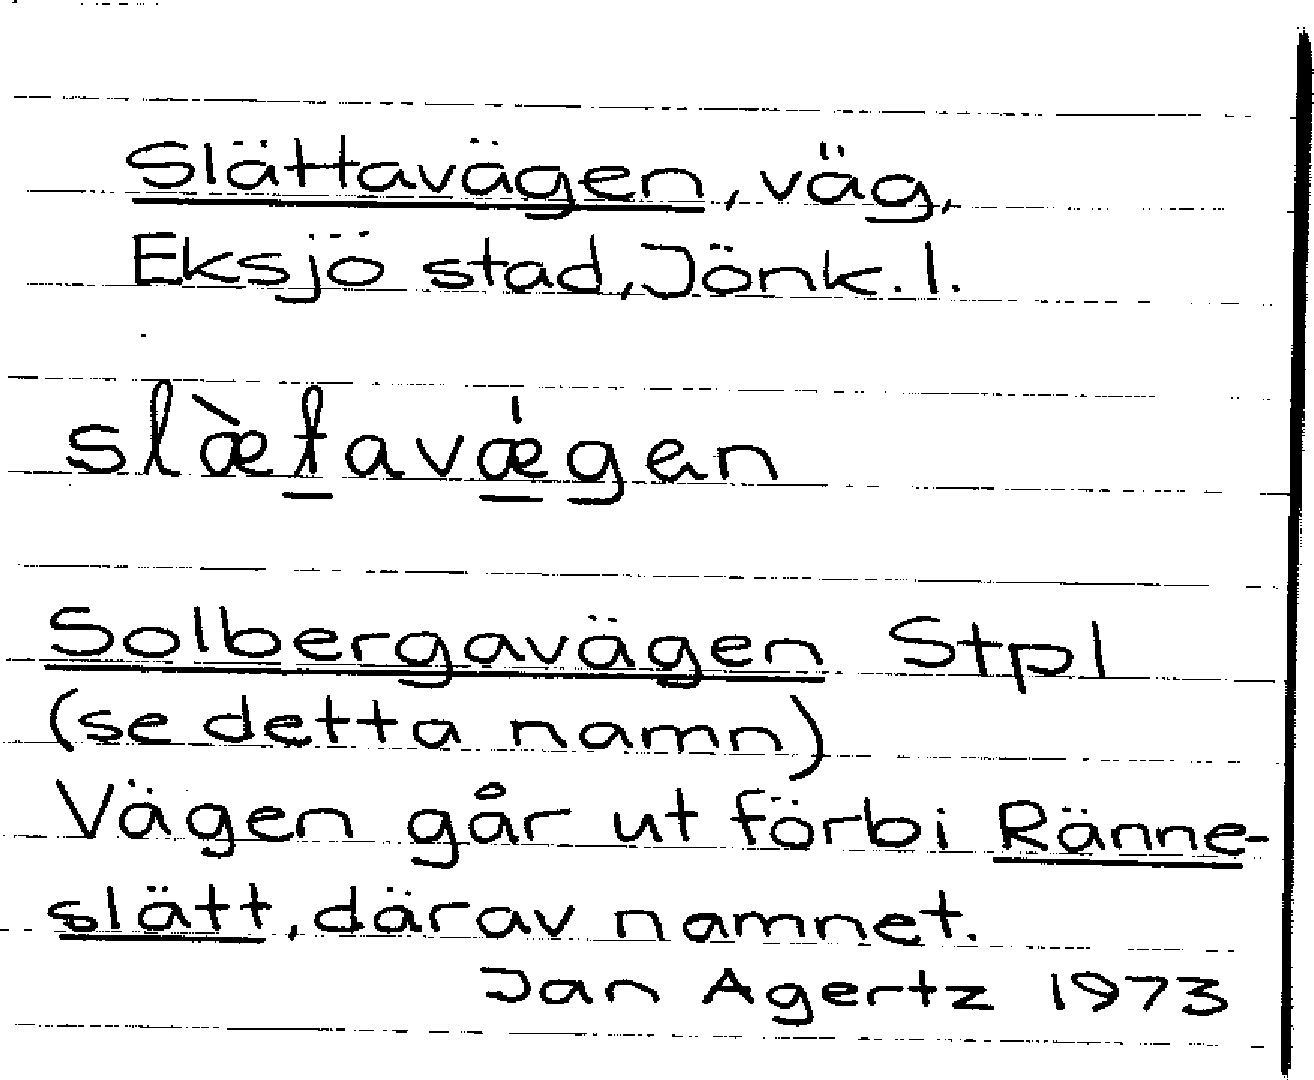 Slättavägen, väg,
Eksjö stad, Jönk. l.
slæ̀tavǽgən
Solbergavägen Stpl
(se detta namn)
Vägen går ut förbi Ränne-
slätt, därav namnet.
Jan Agertz 1973